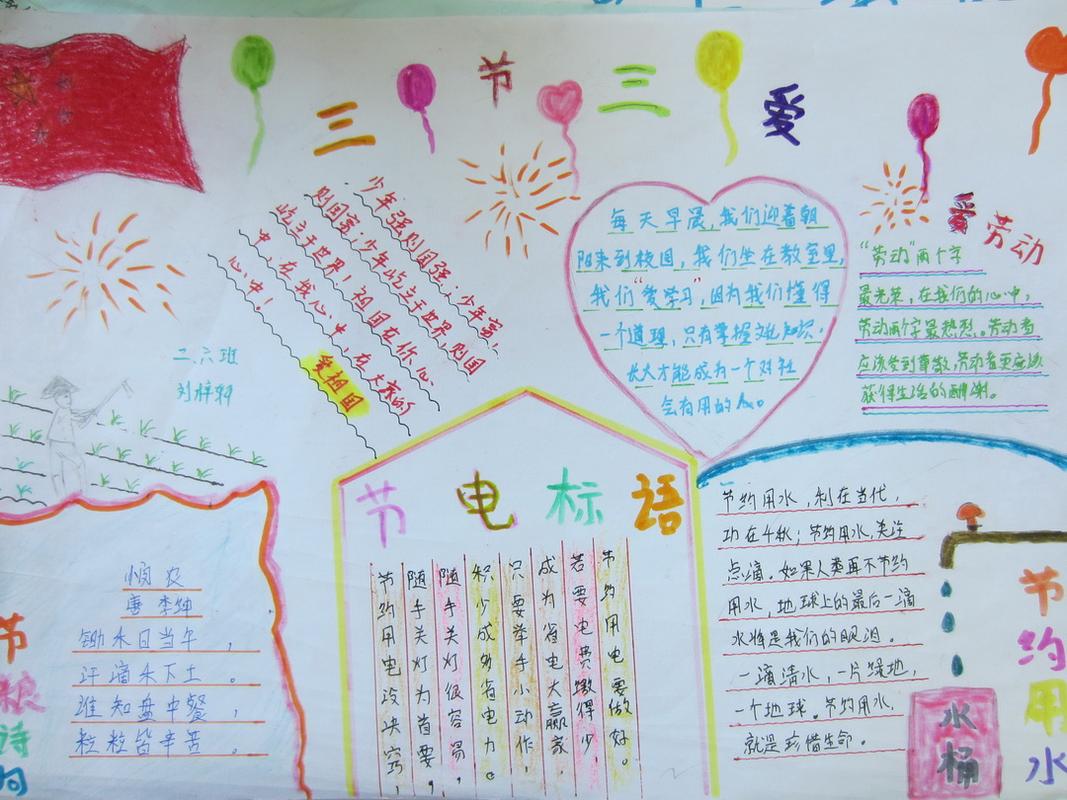 三节三爱
少年强则国强,少年富,
则国富,少年屹立于世界,则国
屹立于世界!祖国在你心
中,在我心中,在大家的
心中!
爱祖国
二、六班
每天早晨,我们迎着朝
阳来到校园,我们坐在教室里,
我们“爱学习”,因为我们懂得
一个道理,只有掌握文化知识,
长大才能成为一个对社
会有用的人。
爱劳动
“劳动”两个字
最光荣,在我们的心中,
劳动两个字最热烈。劳动者
应该受到尊敬,劳动者更应该
获得生活的酬谢。
悯农
唐 李绅
锄禾日当午,
汗滴禾下土。
谁知盘中餐,
粒粒皆辛苦。
节粮诗句
节电标语
节约用电要做好。
若要电费缴得少,
成为省电大赢家,
只要举手小动作,
积少成多省电力。
随手关灯很容易,
随手关灯为首要,
节约用电没决窍,
节约用水,利在当代,
功在千秋;节约用水,关注
点滴。如果人类再不节约
用水,地球上的最后一滴
水将是我们的眼泪。
一滴清水,一片绿地,
一个地球。节约用水,
就是珍惜生命。
水桶
节约用水